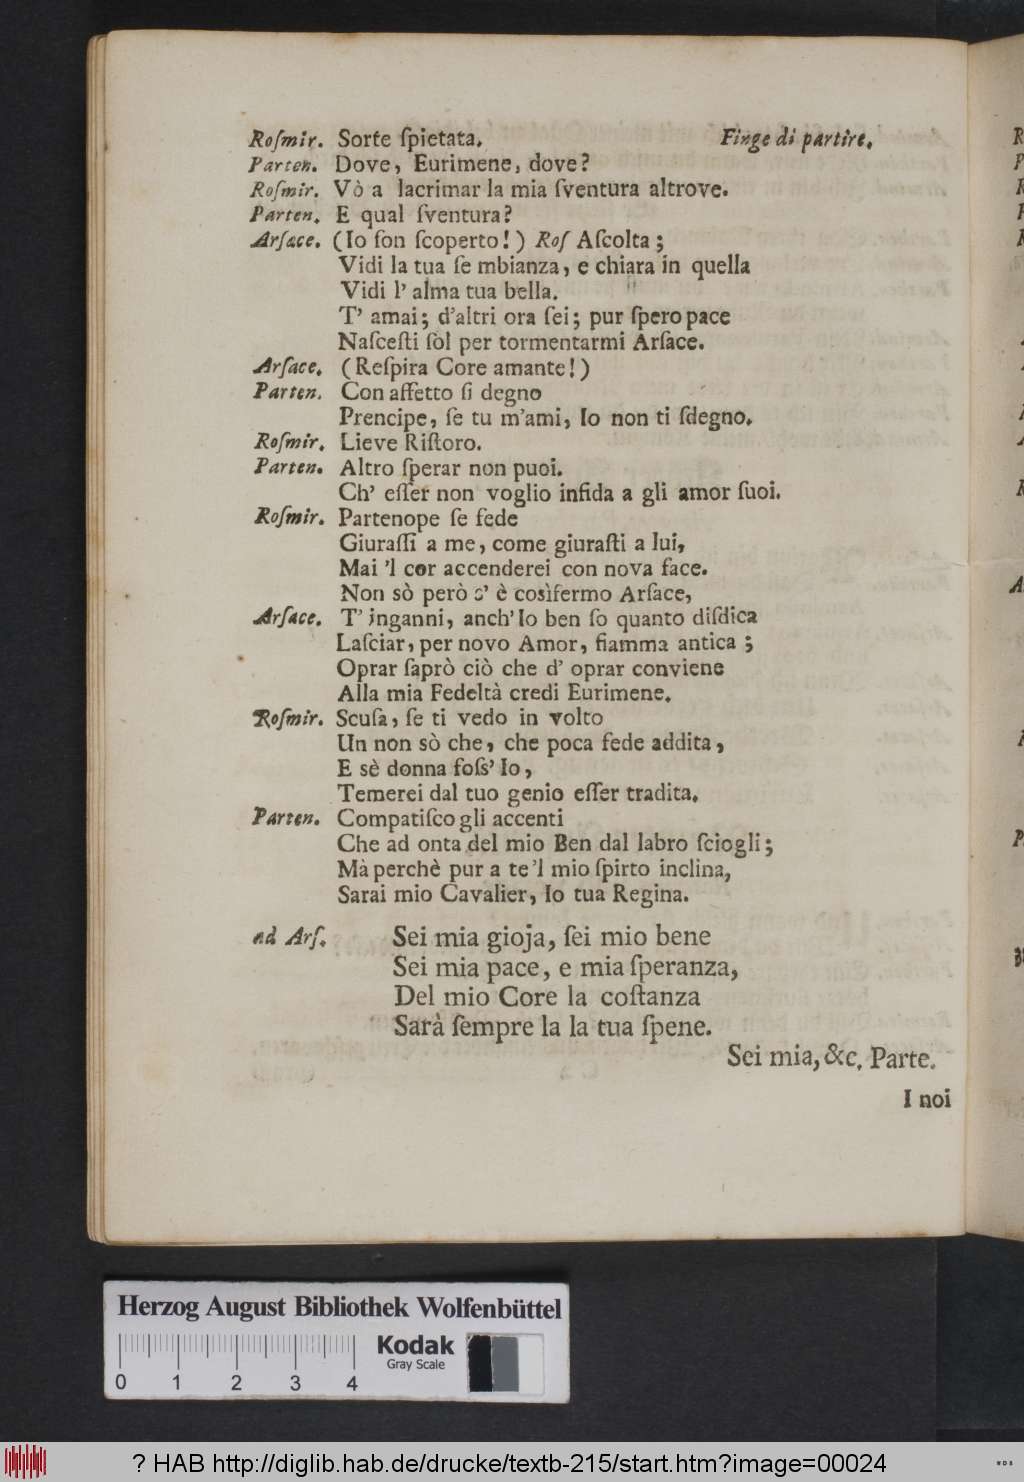 Roſmir. Sorte ſpietata. Finge di partire.
Parten. Dove, Eurimene, dove?
Roſmir. Vò a lacrimar la mia ſventura altrove.
Parten. E qual ſventura?
Arſace. (Io ſon ſcoperto!) Roſ Aſcolta;
Vidi la tua ſe mbianza, e chiara in quella
Vidi l' alma tua bella.
T' amai; d'altri ora ſei; pur ſpero pace
Naſceſti ſòl per tormentarmi Arſace.
Arſace. (Reſpira Core amante!)
Parten. Con affetto ſi degno
Prencipe, ſe tu m'ami, Io non ti ſdegno.
Roſmir. Lieve Riſtoro.
Parten. Altro ſperar non puoi.
Ch' eſſer non voglio infida a gli amor ſuoi.
Roſmir. Partenope ſe fede
Giuraſſi a me, come giuraſti a lui,
Mai 'l cor accenderei con nova face.
Non sò però s' è cosìfermo Arſace,
Arſace. T' inganni, anch' Io ben ſo quanto diſdica
Laſciar, per novo Amor, fiamma antica;
Oprar ſaprò ciò che d' oprar conviene
Alla mia Fedeltà credi Eurimene.
Roſmir. Scuſa, ſe ti vedo in volto
Un non sò che, che poca fede addita,
E sè donna foſs' Io,
Temerei dal tuo genio eſſer tradita.
Parten. Compatiſco gli accenti
Che ad onta del mio Ben dal labro ſciogli;
Mà perchè pur a te 'l mio ſpirto inclina,
Sarai mio Cavalier, Io tua Regina.
ad Arſ. Sei mia gioja, ſei mio bene
Sei mia pace, e mia ſperanza,
Del mio Core la coſtanza
Sarà ſempre la la tua ſpene.
Sei mia, &c. Parte.
I noi
Herzog August Bibliothek Wolfenbüttel
Kodak
Gray Scale
0 1 2 3 4
? HAB http://diglib.hab.de/drucke/textb-215/start.htm?image=00024